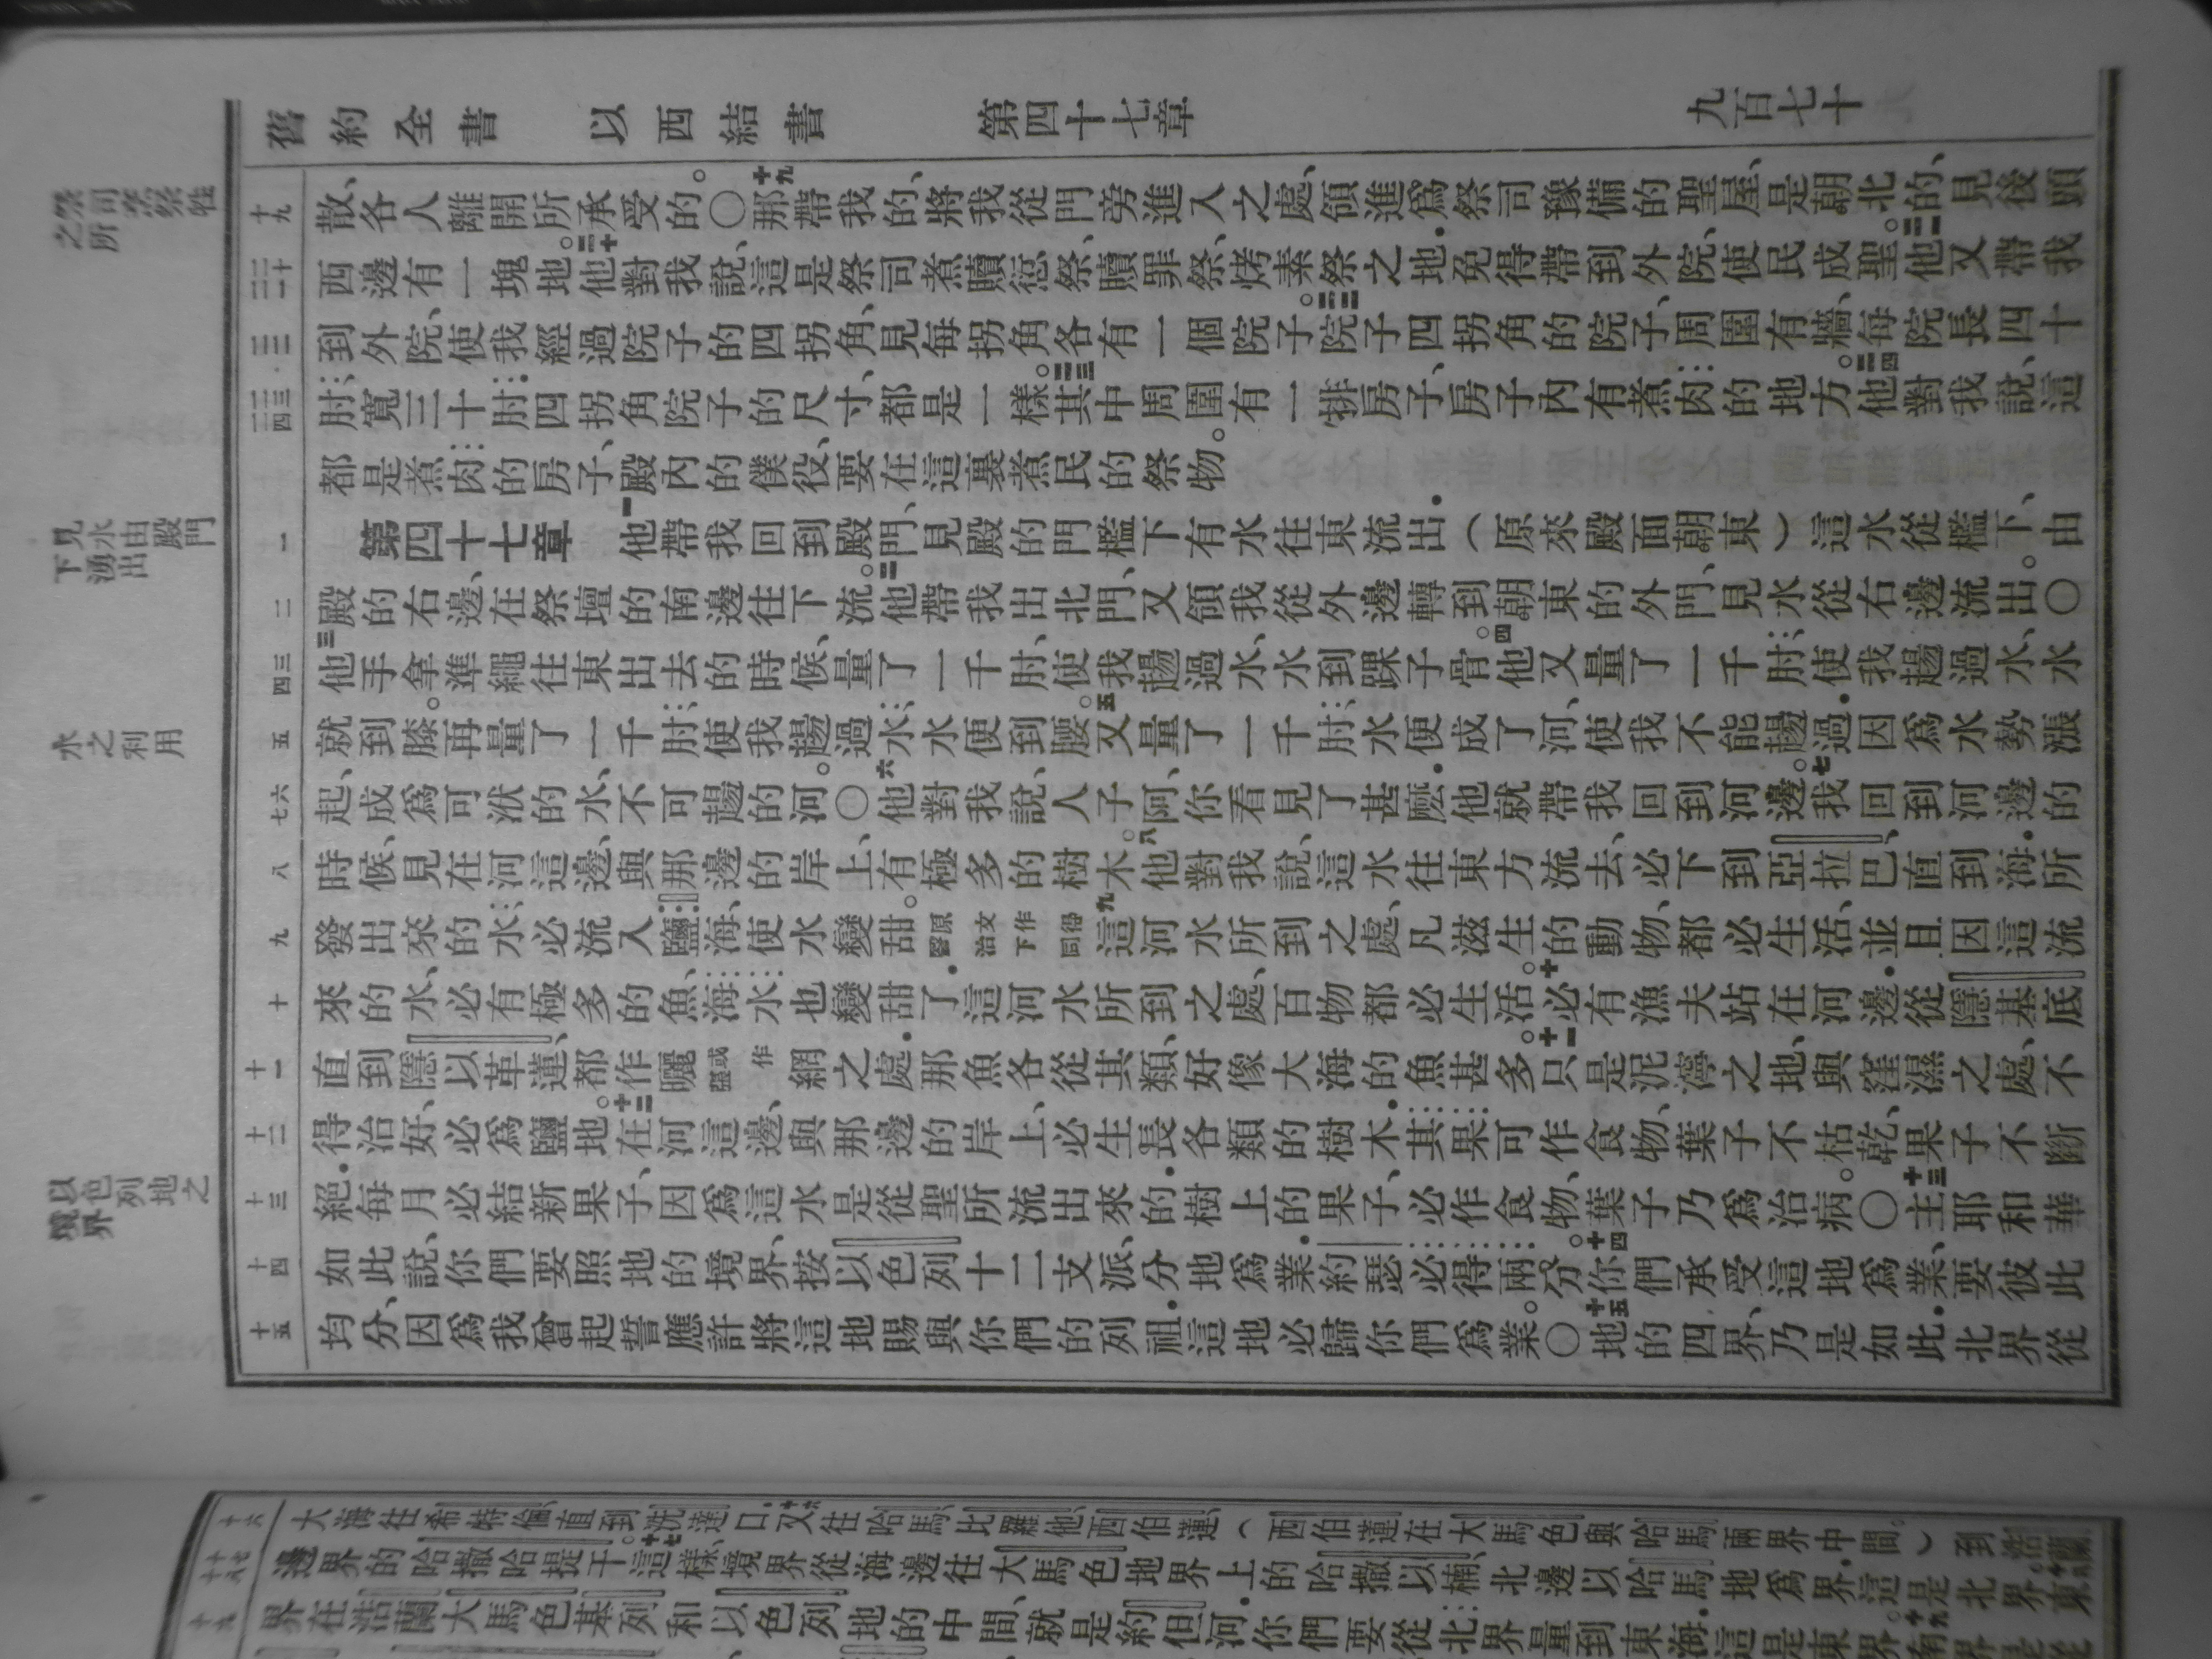 舊約全書　以西結書　第四十七章　九百七十
之祭司煮祭牲之所
散、各人離開所承受的。○十九那帶我的、將我從門旁進入之處、領進爲祭司豫備的聖屋、是朝北的、見後頭
西邊有一塊地。二十他對我說、這是祭司煮贖愆祭、贖罪祭、烤素祭之地．免得帶到外院、使民成聖。二一他又帶我
到外院、使我經過院子的四拐角、見每拐角各有一個院子。二二院子四拐角的院子、周圍有牆、每院長四十
肘、寬三十肘．四拐角院子的尺寸、都是一樣。二三其中周圍有一排房子、房子內有煮肉的地方。二四他對我說、這
都是煮肉的房子、殿內的僕役、要在這裏煮民的祭物。
見水由殿門下湧出
第四十七章　一他帶我回到殿門、見殿的門檻下有水往東流出．（原來殿面朝東）這水從檻下、由
殿的右邊、在祭壇的南邊往下流。二他帶我出北門、又領我從外邊轉到朝東的外門、見水從右邊流出。○
三他手拿準繩往東出去的時候、量了一千肘、使我趟過水、水到踝子骨。四他又量了一千肘、使我趟過水、水
水之利用
就到膝。再量了一千肘、使我趟過水、水便到腰。五又量了一千肘、水便成了河、使我不能趟過．因爲水勢漲
起、成爲可洑的水、不可趟的河。○六他對我說、人子阿、你看見了甚麼．他就帶我回到河邊。七我回到河邊的
時候、見在河這邊、與那邊的岸上、有極多的樹木。八他對我說、這水往東方流去、必下到亞拉巴、直到海．所
發出來的水、必流入鹽海、使水變甜。原文作醫治下同九這河水所到之處、凡滋生的動物、都必生活、並且因這流
來的水、必有極多的魚、海水也變甜了．這河水所到之處、百物都必生活。十必有漁夫站在河邊．從隱基底
直到隱以革蓮、都作曬或作網之處．那魚各從其類、好像大海的魚甚多。十一只是泥濘之地、與窪濕之處、不
得治好、必爲鹽地。十二在河這邊、與那邊的岸上、必生長各類的樹木．其果可作食物、葉子不枯乾、果子不斷
以色列地之境界
絕．每月必結新果子、因爲這水是從聖所流出來的．樹上的果子、必作食物、葉子乃爲治病。○十三主耶和華
如此說、你們要照地的境界、按以色列十二支派、分地爲業．約瑟必得兩分。十四你們承受這地爲業、要彼此
均分、因爲我曾起誓應許將這地賜與你們的列祖．這地必歸你們爲業。○十五地的四界、乃是如此．北界從
大海往希特倫直到西達口．十六又往哈馬、比羅他、西伯蓮、（西伯蓮在大馬色與哈馬兩界中間。）到浩蘭
邊界的哈撒哈提干。十七這樣、境界從海邊往大馬色地界上的哈撒以楠、北邊以哈馬地爲界．這是北界。東
界在浩蘭、大馬色、基列、和以色列地的中間、就是約但河．你們要從北界量到東海．這是東界。十九南界是